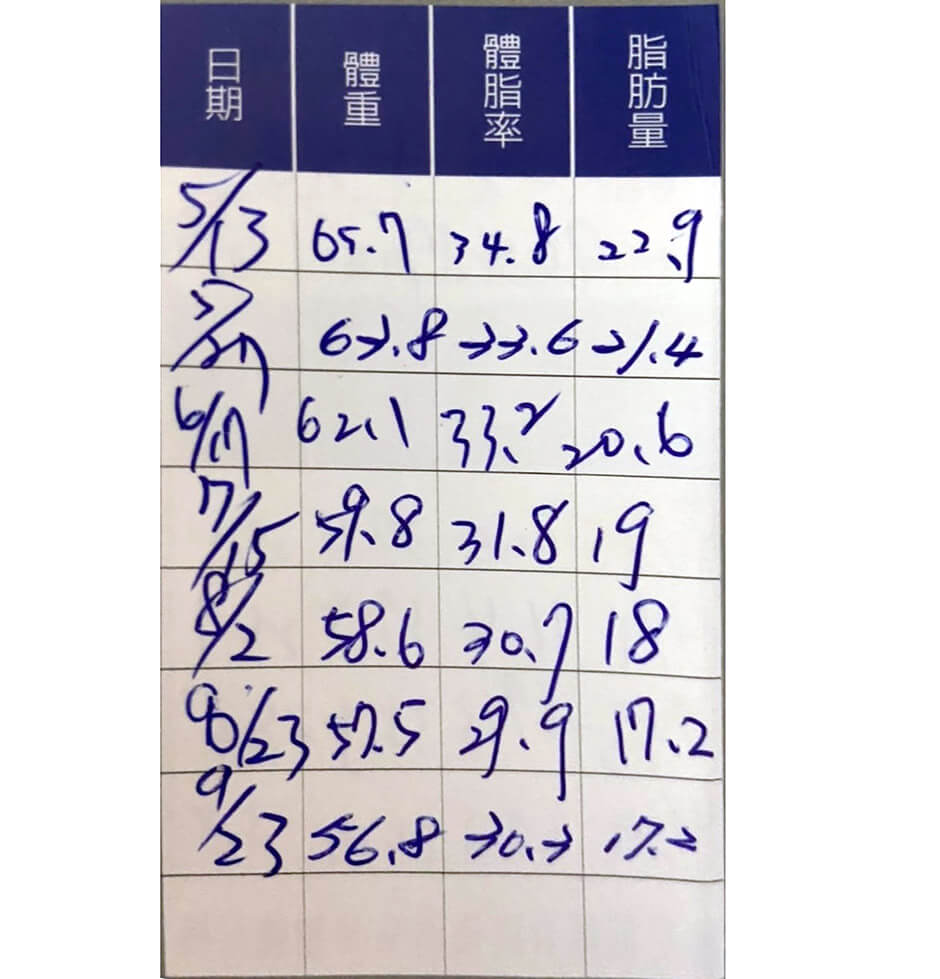 日期 體重 體脂率 脂肪量
5/13 65.7 34.8 22.9
5/27 63.8 33.6 21.4
6/17 62.1 33.2 20.6
7/15 59.8 31.8 19
8/2 58.6 30.7 18
8/23 57.5 29.9 17.2
9/23 56.8 30.3 17.2